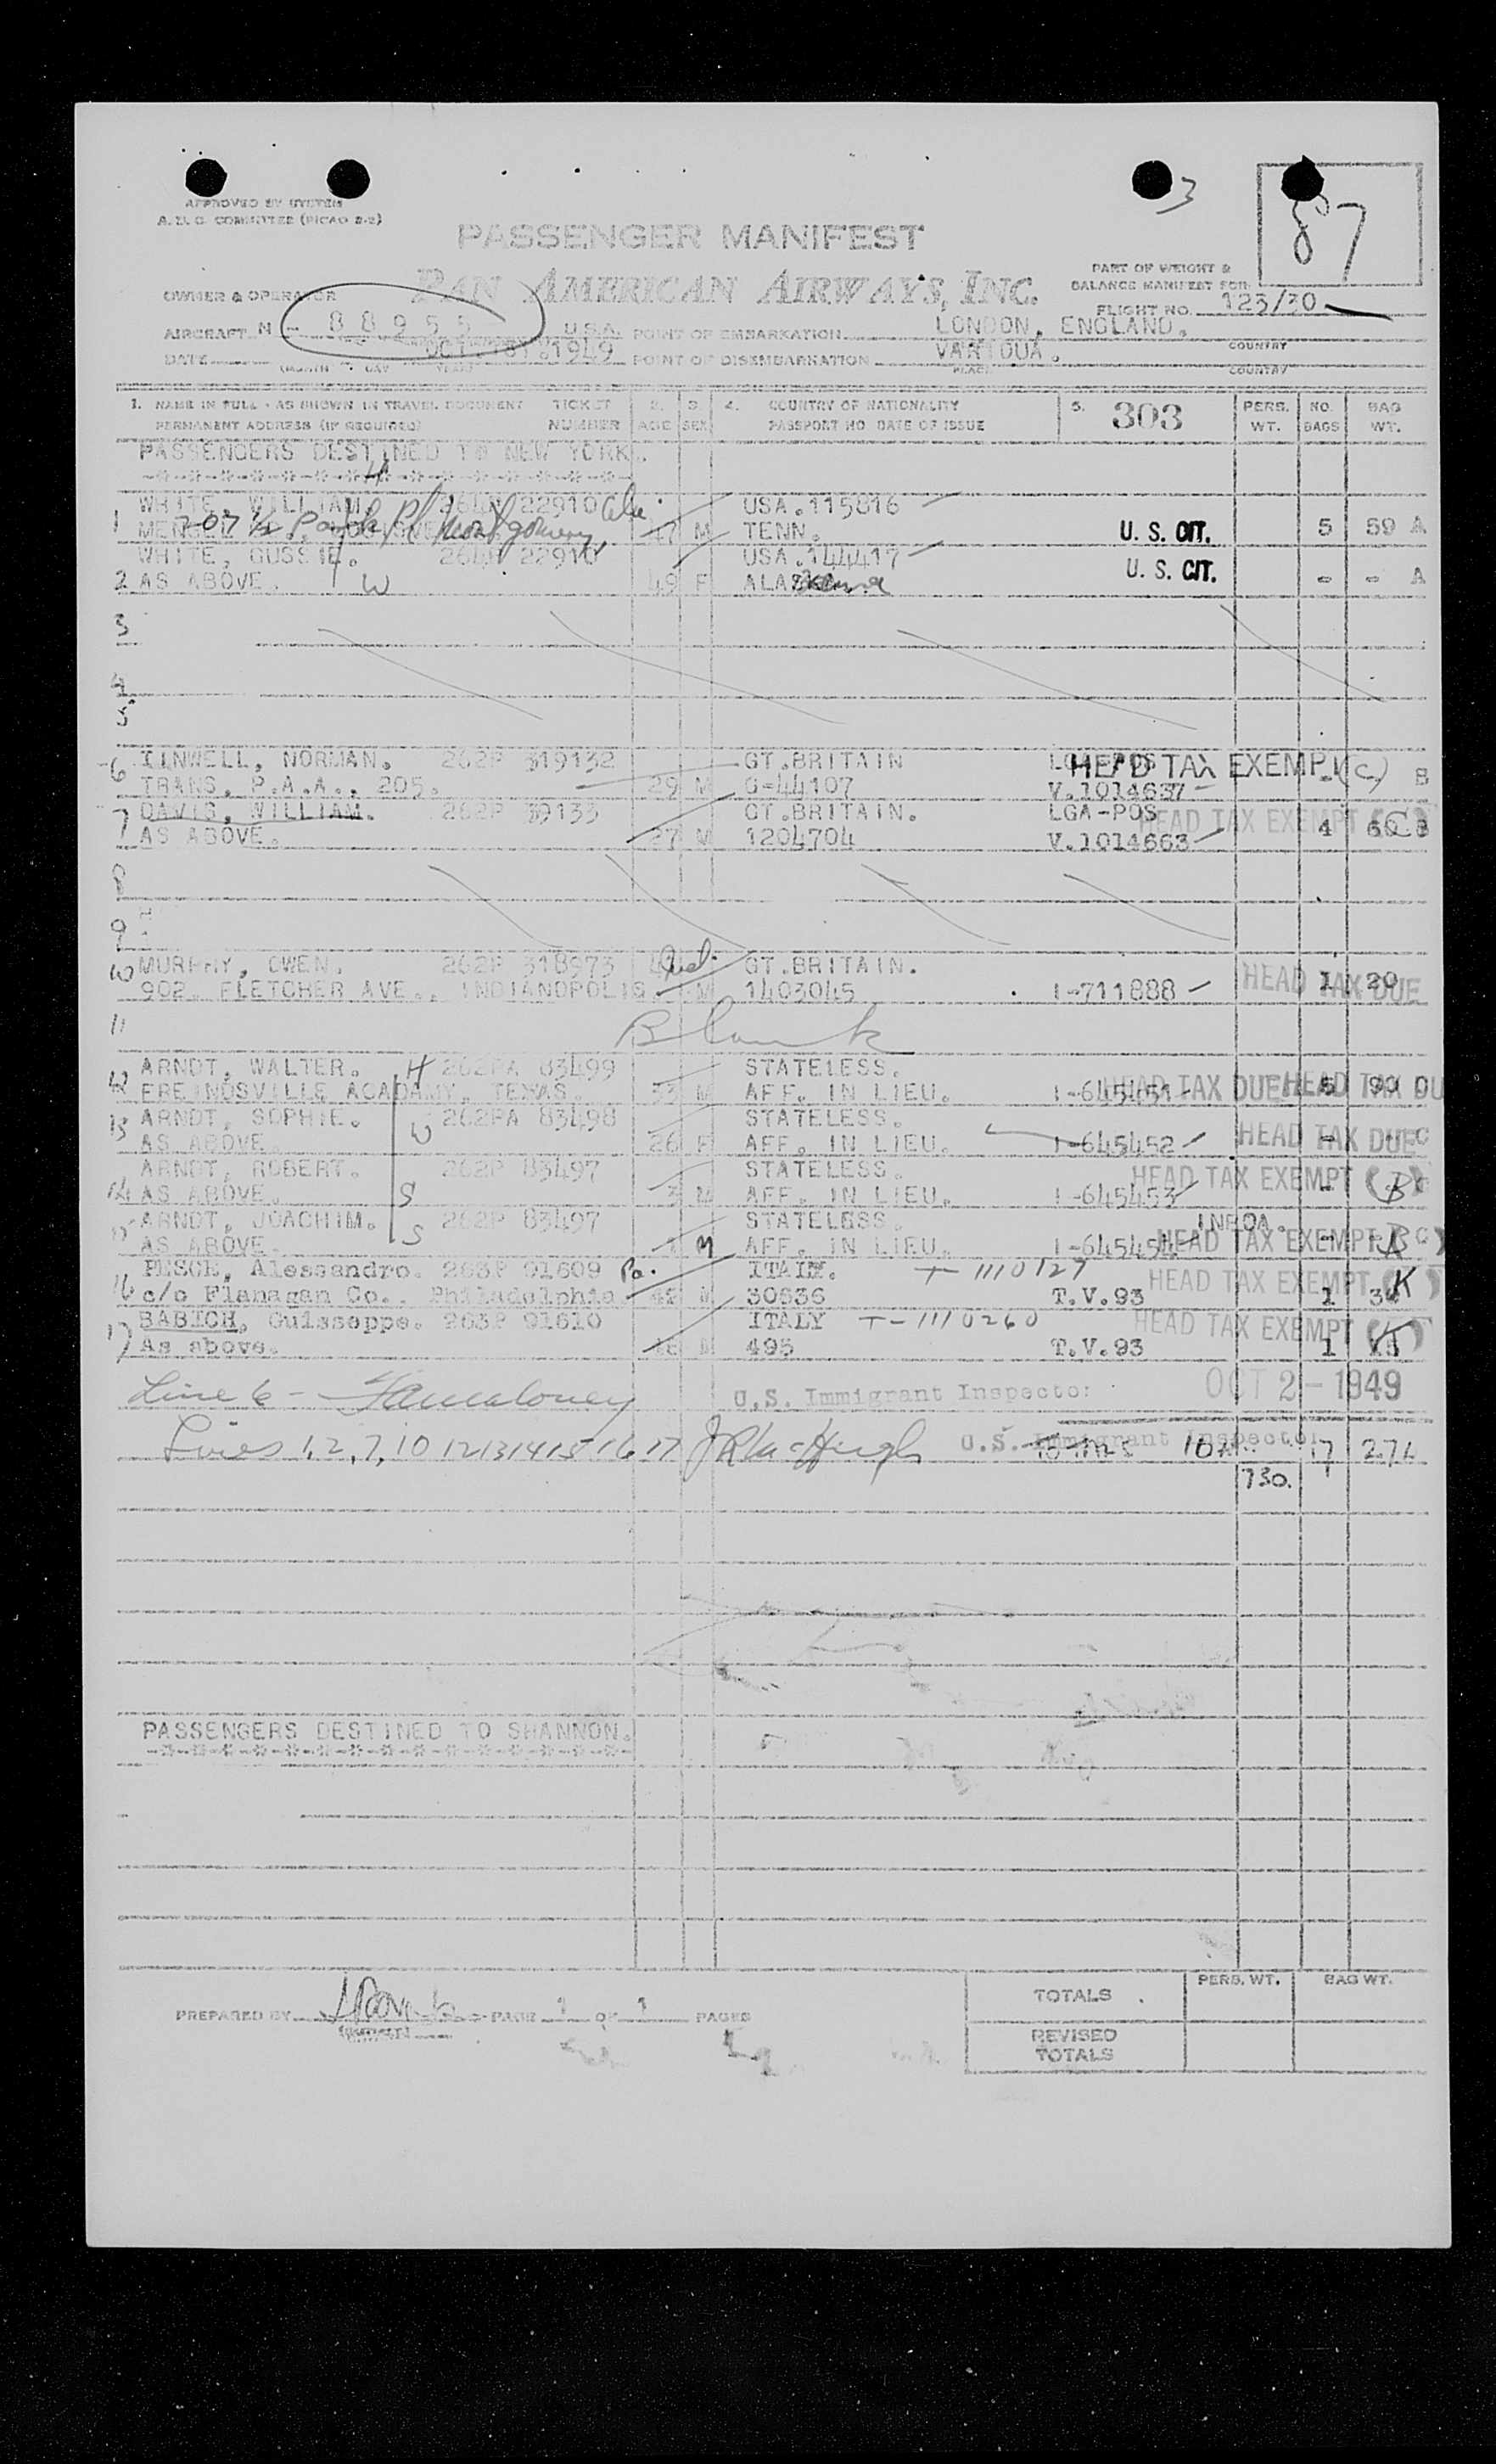 3
87
APPROVED BY SYSTEM
A.D.C. COMMITTEE (PICAO 2-2)
PASSENGER MANIFEST
PAN AMERICAN AIRWAYS, INC.
PART OF WEIGHT &
BALANCE MANIFEST FOR
FLIGHT NO. 123/30
OWNER & OPERATOR
AIRCRAFT N - 88955 U.S.A. POINT OF EMBARKATION LONDON, ENGLAND.
COUNTRY
DATE OCT. 1ST. 1949 POINT OF DISEMBARKATION VARIOUA.
(MONTH DAY YEAR) PLACE COUNTRY
1. NAME IN FULL - AS SHOWN IN TRAVEL DOCUMENT TICKET 2. 3. 4. COUNTRY OF NATIONALITY 5. 303 PERS. NO. BAG
PERMANENT ADDRESS (IF REQUIRED) NUMBER AGE SEX PASSPORT NO DATE OF ISSUE WT. BAGS WT.
PASSENGERS DESTINED TO NEW YORK.
-*-*-*-*-*-*-*-*-*-*-*-*-*-*-*-
H
WHITE, WILLIAM. 264P 22910 USA.115816
1 707 1/2 Pl Montgomery, 47 M TENN. U. S. CIT. 5 59 A
WHITE, GUSSIE. 264P 22910 USA.144417
2 AS ABOVE. W 49 F U. S. CIT. - - A
3
4
5
6 NORMAN. 262P 319132 GT.BRITAIN HEAD TAX EXEMPT (C)
TRANS, P.A.A., 205. 29 M G-44107 V.1014637 B
7 DAVIS, WILLIAM. 262P GT.BRITAIN. LGA-POS HEAD TAX EXEMPT
AS ABOVE. 27 M 1204704 V.1014663 4
8
9
10 MURPHY, OWEN. 262P 318973 Ind. GT.BRITAIN.
902. FLETCHER AVE., INDIANOPOLIS. M 1403045 I-711888 HEAD TAX DUE 1 20
11 Blank
12 ARNDT, WALTER. H 262PA 83499 STATELESS.
FREINDSVILLE ACADAMY, TEXAS. 33 M AFF. IN LIEU. I-645451 HEAD TAX DUE HEAD TAX DUE 5 90
13 ARNDT, SOPHIE. W 262PA 83498 STATELESS.
AS ABOVE. 26 F AFF. IN LIEU. I-645452 HEAD TAX DUE - - C
ARNDT, ROBERT. 262P 83497 STATELESS. HEAD TAX EXEMPT
14 AS ABOVE. S 3 M AFF. IN LIEU. I-645453 - B
15 ARNDT, JOACHIM. S 262P 83497 STATELESS.
AS ABOVE. M AFF. IN LIEU. I-645454 HEAD TAX EXEMPT
PESCE, Alessandro. 263P 01609 Pa. ITALY. T-1110127 HEAD TAX EXEMPT (K)
16 c/o Flanagan Co., Philadelphia 42 M 30636 T.V.93 1
17 BABICH, Guisseppe. 263P 01610 ITALY T-1110260 HEAD TAX EXEMPT (K)
As above. 495 T.V.93 1
Line 6 - U.S. Immigrant Inspector OCT 2 - 1949
Lines 1, 2, 7, 10 12 13 14 15 16 17 U.S. Immigrant Inspector 17 274
730.
PASSENGERS DESTINED TO SHANNON.
-*-*-*-*-*-*-*-*-*-*-*-*-*-*-*-
PREPARED BY PAGE 1 OF 1 PAGES
TOTALS PERS. WT. BAG WT.
REVISED
TOTALS